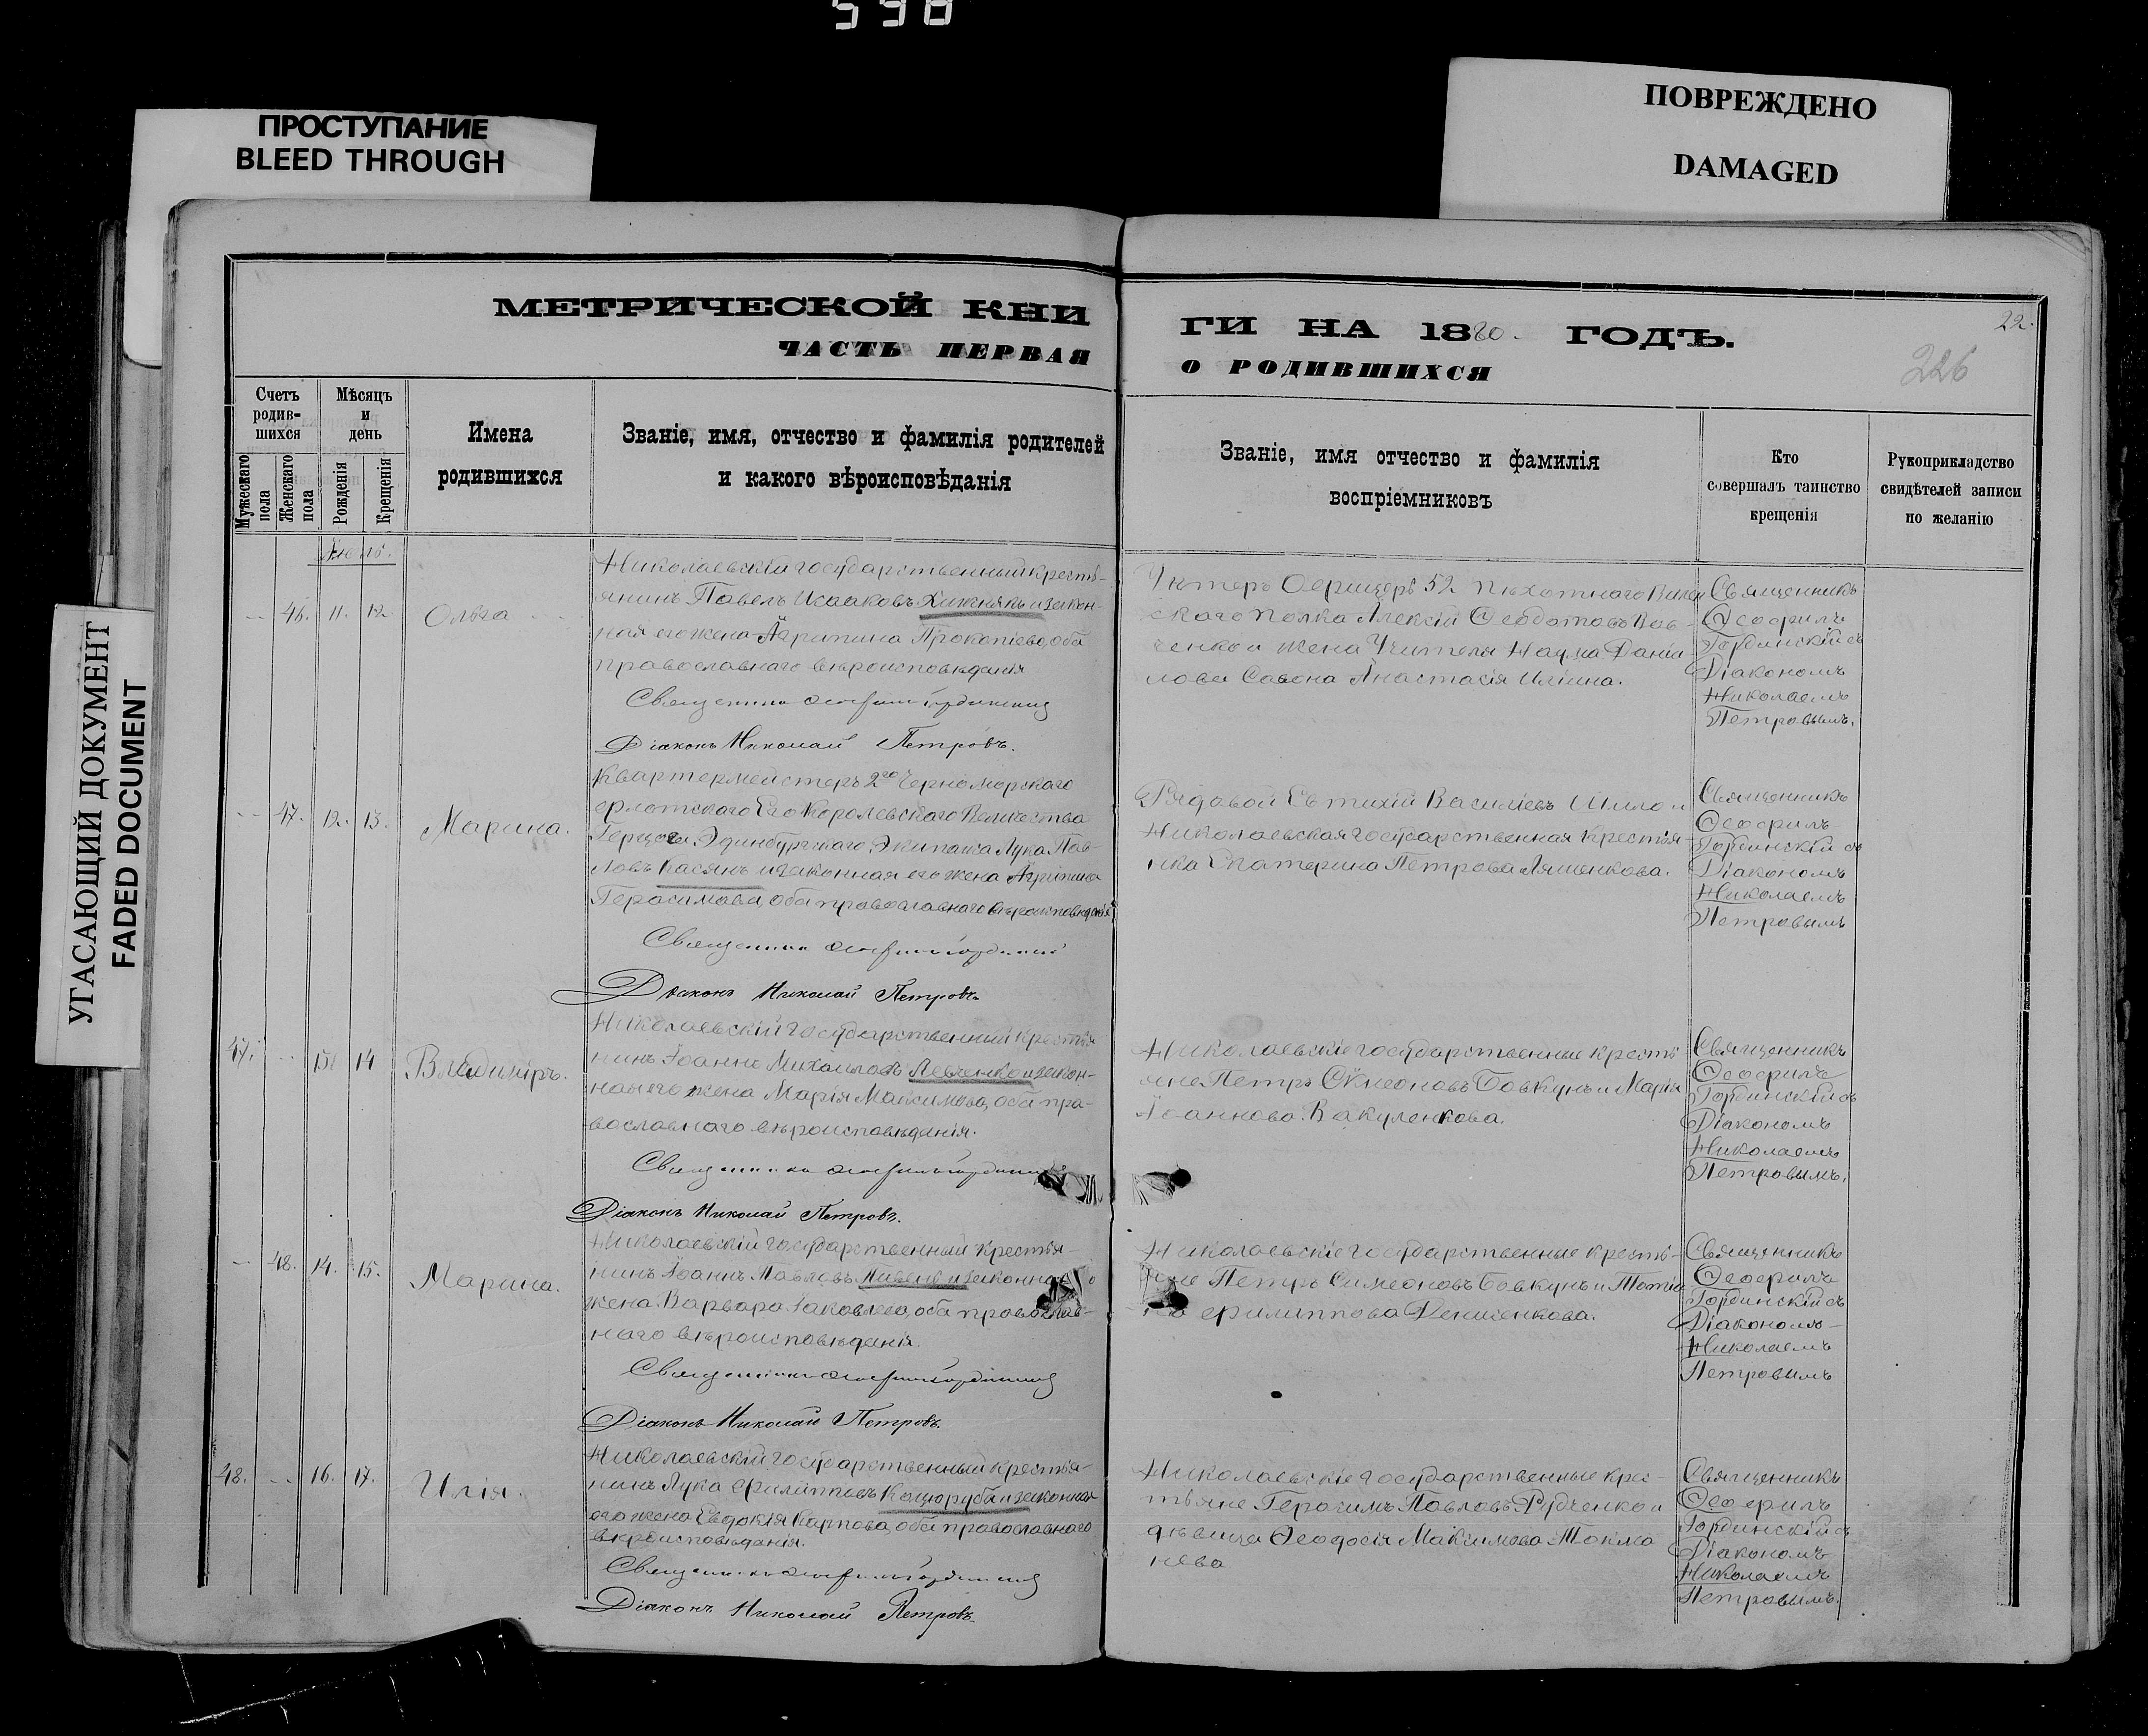 598
ПРОСТУПАНИЕ
BLEED THROUGH
ПОВРЕЖДЕНО
DAMAGED
УГАСАЮЩИЙ ДОКУМЕНТ
FADED DOCUMENT
МЕТРИЧЕСКОЙ КНИ
ЧАСТЬ ПЕРВАЯ
Счетъ
родив-
шихся
Мѣсяцъ
и
день
Мужескаго
пола
Женскаго
пола
Рожденія
Крещенія
Имена
родившихся
Званіе, имя, отчество и фамилія родителей
и какого вѣроисповѣданія
ГИ НА 1880. ГОДЪ.
О РОДИВШИХСЯ
22.
226
Званіе, имя отчество и фамилія
воспріемниковъ
Кто
совершалъ таинство
крещенія
Рукоприкладство
свидѣтелей записи
по желанію
46. 11. 12. Ольга
Николаевскій государственный кресть-
янинъ Павелъ Исааковъ Хижнякъ и закон-
ная его жена Агрипина Прокопіева, оба
православнаго вѣроисповѣданія
Діаконъ Николай Петровъ.
Унтеръ Офицеръ 52 пѣхотнаго
скаго полка Алексій Ѳеодотовъ
ченко и жена Учителя Наума Даніи-
лова Савона Анастасія Иліина.
Священникъ
Ѳеофилъ
Гординскій съ
Діакономъ
Николаемъ
Петровымъ.
47. 12. 13. Марина.
Квартермейстеръ 2го Черноморскаго
флотскаго Его Королевскаго Величества
Герцога Эдинбургскаго Экипажа Лука Пав-
ловъ Касянъ и законная его жена Агрипина
Герасимова, оба православнаго вѣроисповѣданія
Діаконъ Николай Петровъ.
Рядовой Евтихій Василіевъ Шило и
Николаевская государственная крестья-
нка Екатерина Петрова Ляшенкова.
Священникъ
Ѳеофилъ
Гординскій съ
Діакономъ
Николаемъ
Петровымъ
47. 14 Владиміръ.
Николаевскій государственный крестья
нинъ Іоаннъ Михаиловъ Левченко и закон-
ная его жена Марія Максимова, оба пра-
вославнаго вѣроисповѣданія.
Діаконъ Николай Петровъ.
Николаевскіе государственные кресть
яне Петръ Симеоновъ Бовкунъ и Марія
Іоаннова Вакуленкова.
Священникъ
Ѳеофилъ
Гординскій съ
Діакономъ
Николаемъ
Петровымъ.
48. 14. 15. Марина.
Николаевскій государственный крестья-
нинъ Іоаннъ Павловъ и законная
жена Варвара Іаковлева, оба православ-
наго вѣроисповѣданія.
Діаконъ Николай Петровъ.
Николаевскіе государственные кресть-
яне Петръ Симеоновъ Бовкунъ и Татіа
на Филиппова Денисенкова.
Священникъ
Ѳеофилъ
Гординскій съ
Діакономъ
Николаемъ
Петровымъ
48. 16. 17. Илія.
Николаевскій государственный крестья-
нинъ Лука Филипповъ Коцюруба и законная
его жена Евдокія Карпова, оба православнаго
вѣроисповѣданія.
Діаконъ Николай Петровъ.
Николаевскіе государственные крес-
тьяне Герасимъ Павловъ Рудченко и
дѣвица Ѳеодосія Максимова Токма
нева
Священникъ
Ѳеофилъ
Гординскій съ
Діакономъ
Николаемъ
Петровымъ.